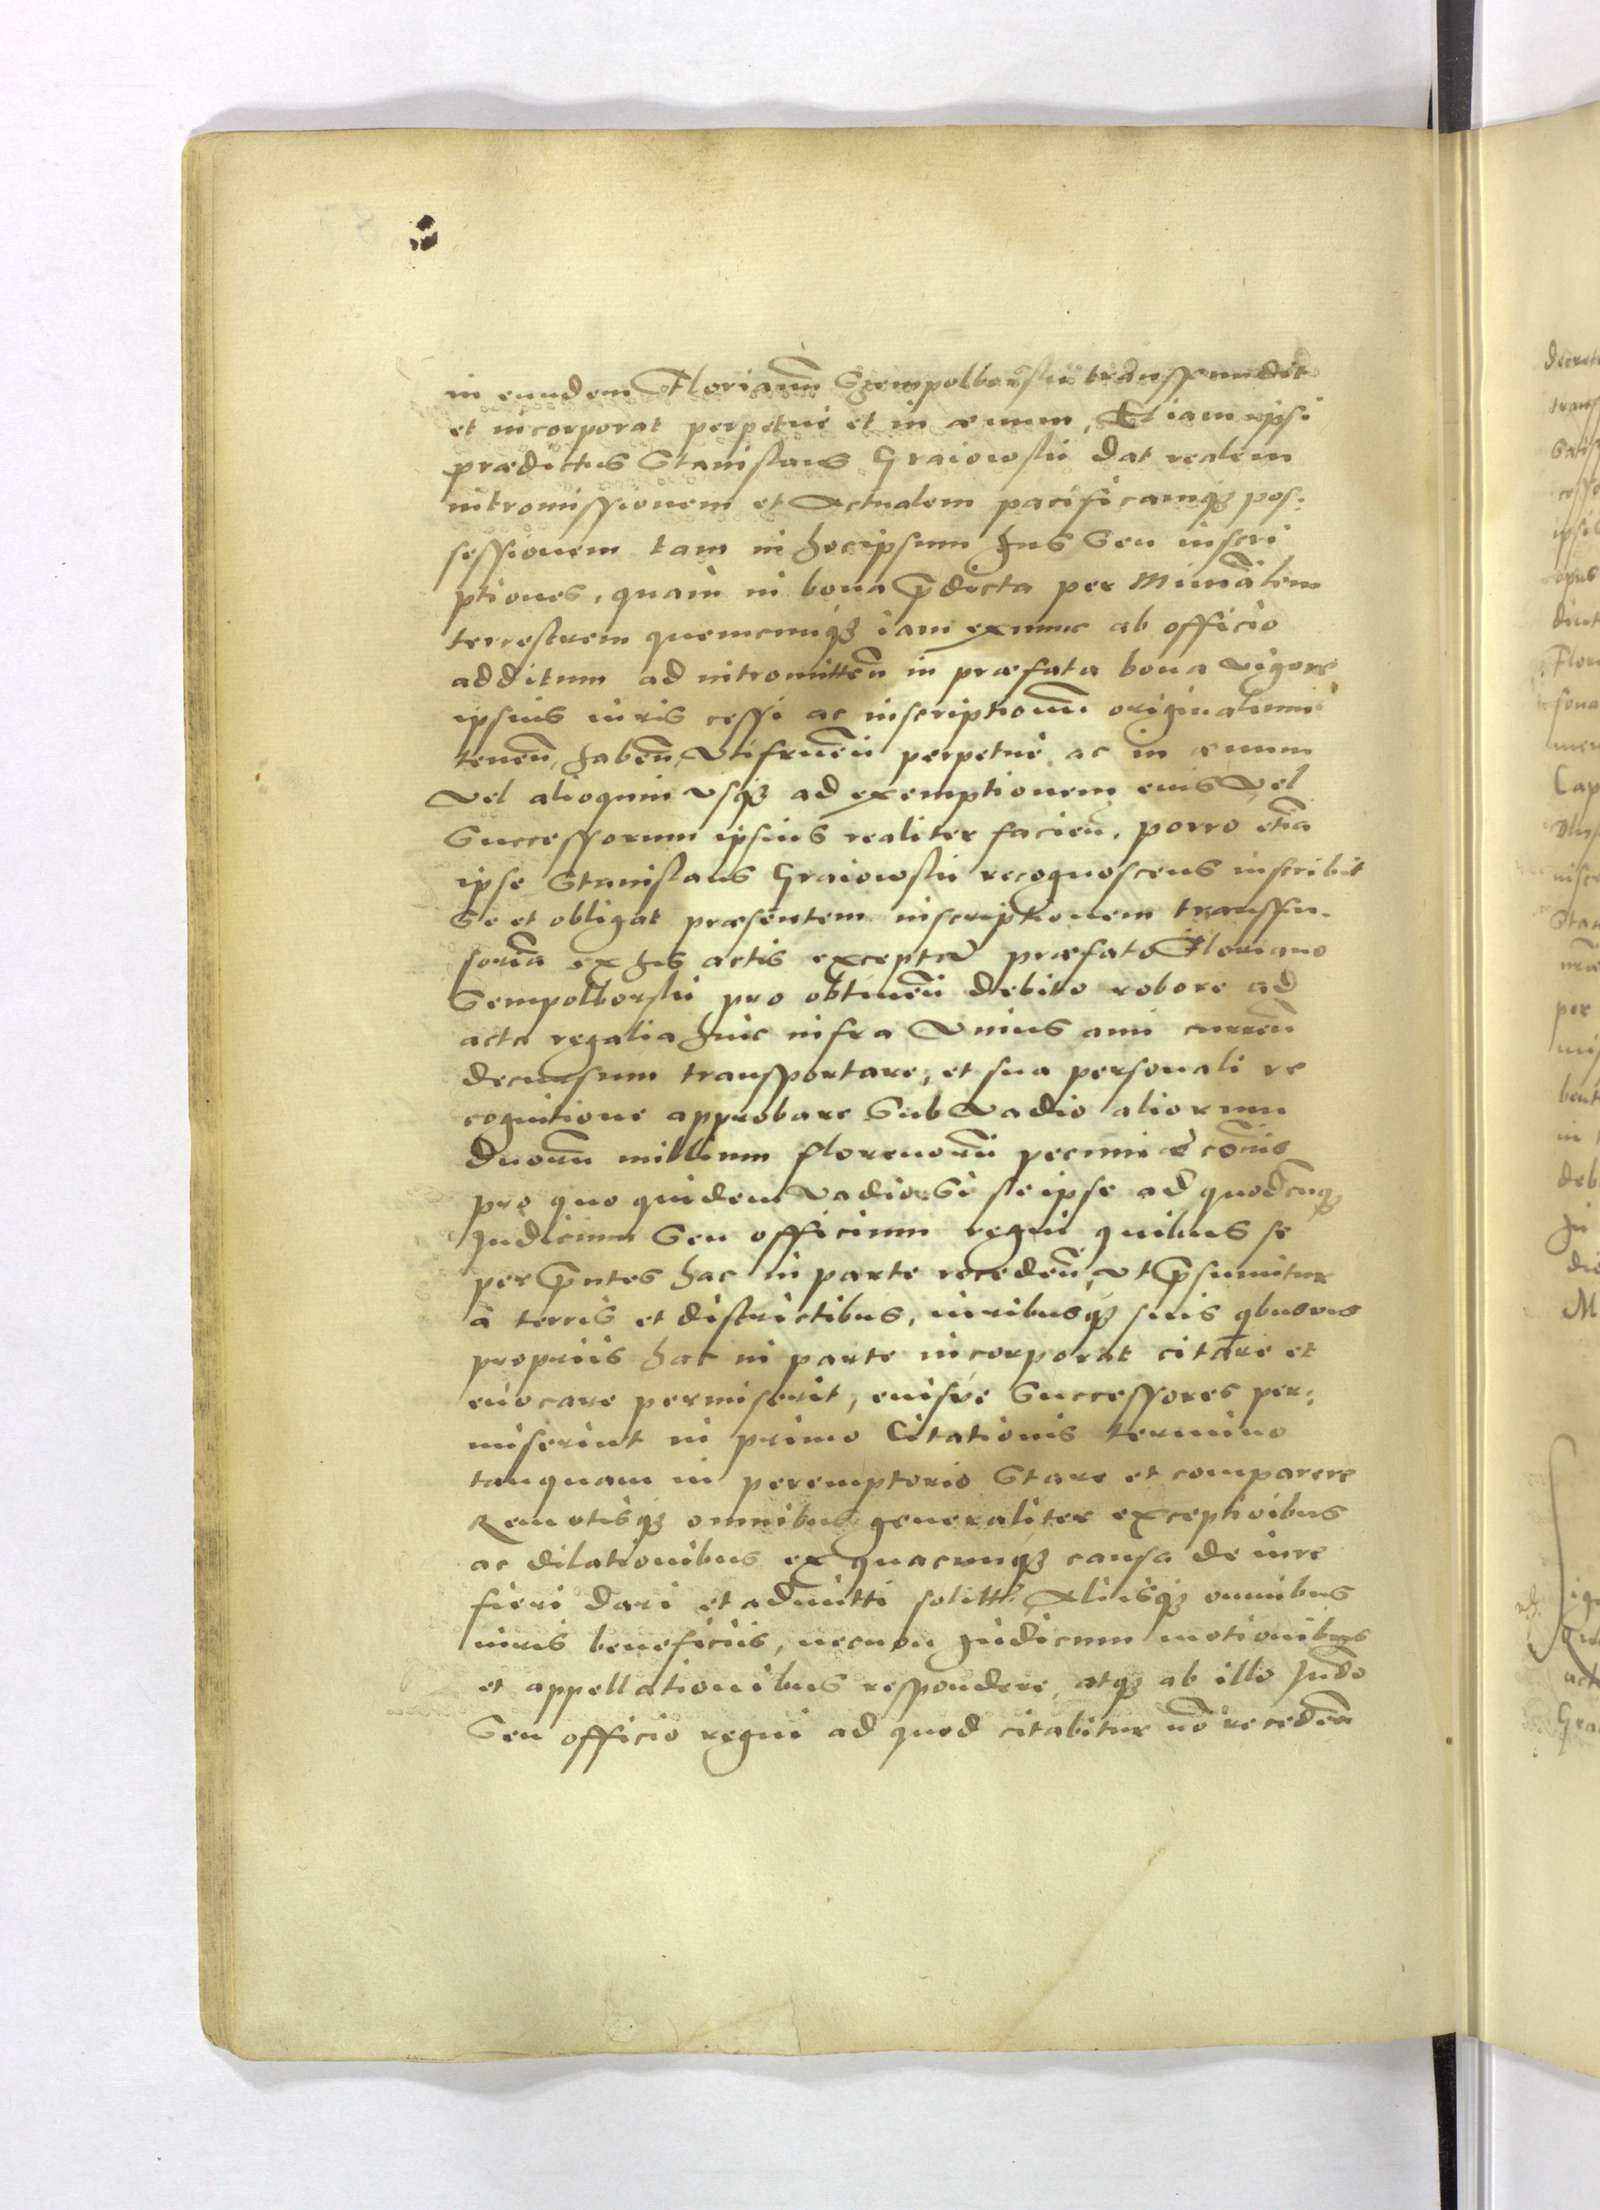 in eundem Florianũ Szempolborski transfundit
et incorporat perpetue et in ævum, Et iam ipsi
prædictus Stanislaus Graiowski dat realem
intromissionem et Actualem pacificamq3 pos:
sessionem tam in hocipsum Jus Seu inscri
ptiones, quam in bona p̃dicta per Minr̃alem
terrestrem quemcunq3 iam exnunc ab officio
additum ad intromitteñ in præfata bona vigore
ipsius iuris cessi ac inscriptionũ originalium
teneñ, habeñ, Utifrueñ perpetue ac in ævum
Vel alioquin Usq3 ad exemptionem eius Vel
Successorum ipsius realiter facieñ. porro etiã
ipse Stanislaus Graiowski recognoscens inscribit
Se et obligat præsentem inscriptionem transfu-
soriã ex his actis excepta præfato Floriano
Sempolborski pro obtineñ debito robore ad
acta regalia huic infra Unius anni curreñ
decursum transportare, et sua personali re
cognitione approbare Sub Vadio aliorum
Duorũ millium florenorũ pecuniæ cõmis
pro quo quidem Vadio Si se ipse ad quodcũq3
Judicium Seu officium regni quibus se
per p̃ntes hac in parte recedeñ, ut p̃sumitur
à terris et districtibus, iuribusq3 suis qbusvis
propriis hac in parte incorporat citare et
evocare permiserit, eiusve Successores per:
miserint in primo Citationis termino
tanquam in peremptorio Stare et comparere
Remotisq3 omnibus generaliter exceptioibus
ac dilationibus ex quacunq3 causa de iure
fieri dari et admitti solitis Aliisq3 omnibus
iuris beneficiis, necnon Judicum motionibus
et appellationibus respondere, atq3 ab illo Judo
Seu officio regni ad quod citabitur nõ recedeñ